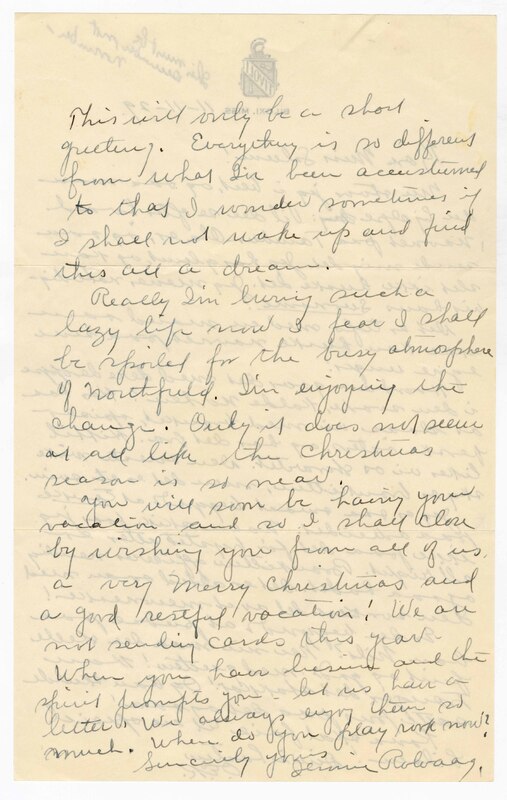 This will only be a short
greeting. Everything is so different
from what I'm been accustomed
to that I wonder sometimes if
I shall not wake up and find
this all a dream.
Really I'm living such a
lazy life now I fear I shall
be spoiled for the busy atmosphere
of Northfield. I'm enjoying the
change. Only it does not seem
at all like the Christmas
season is so near.
You will soon be having your
vacation and so I shall close
by wishing you from all of us,
a very Merry Christmas and
a good restful vacation! We are
not sending cards this year.
When you have leisure and the
spirit prompts you - let us have a
letter. We always enjoy them so
much. When do you play rook now?
Sincerely yours
Jennie Rolvaag.